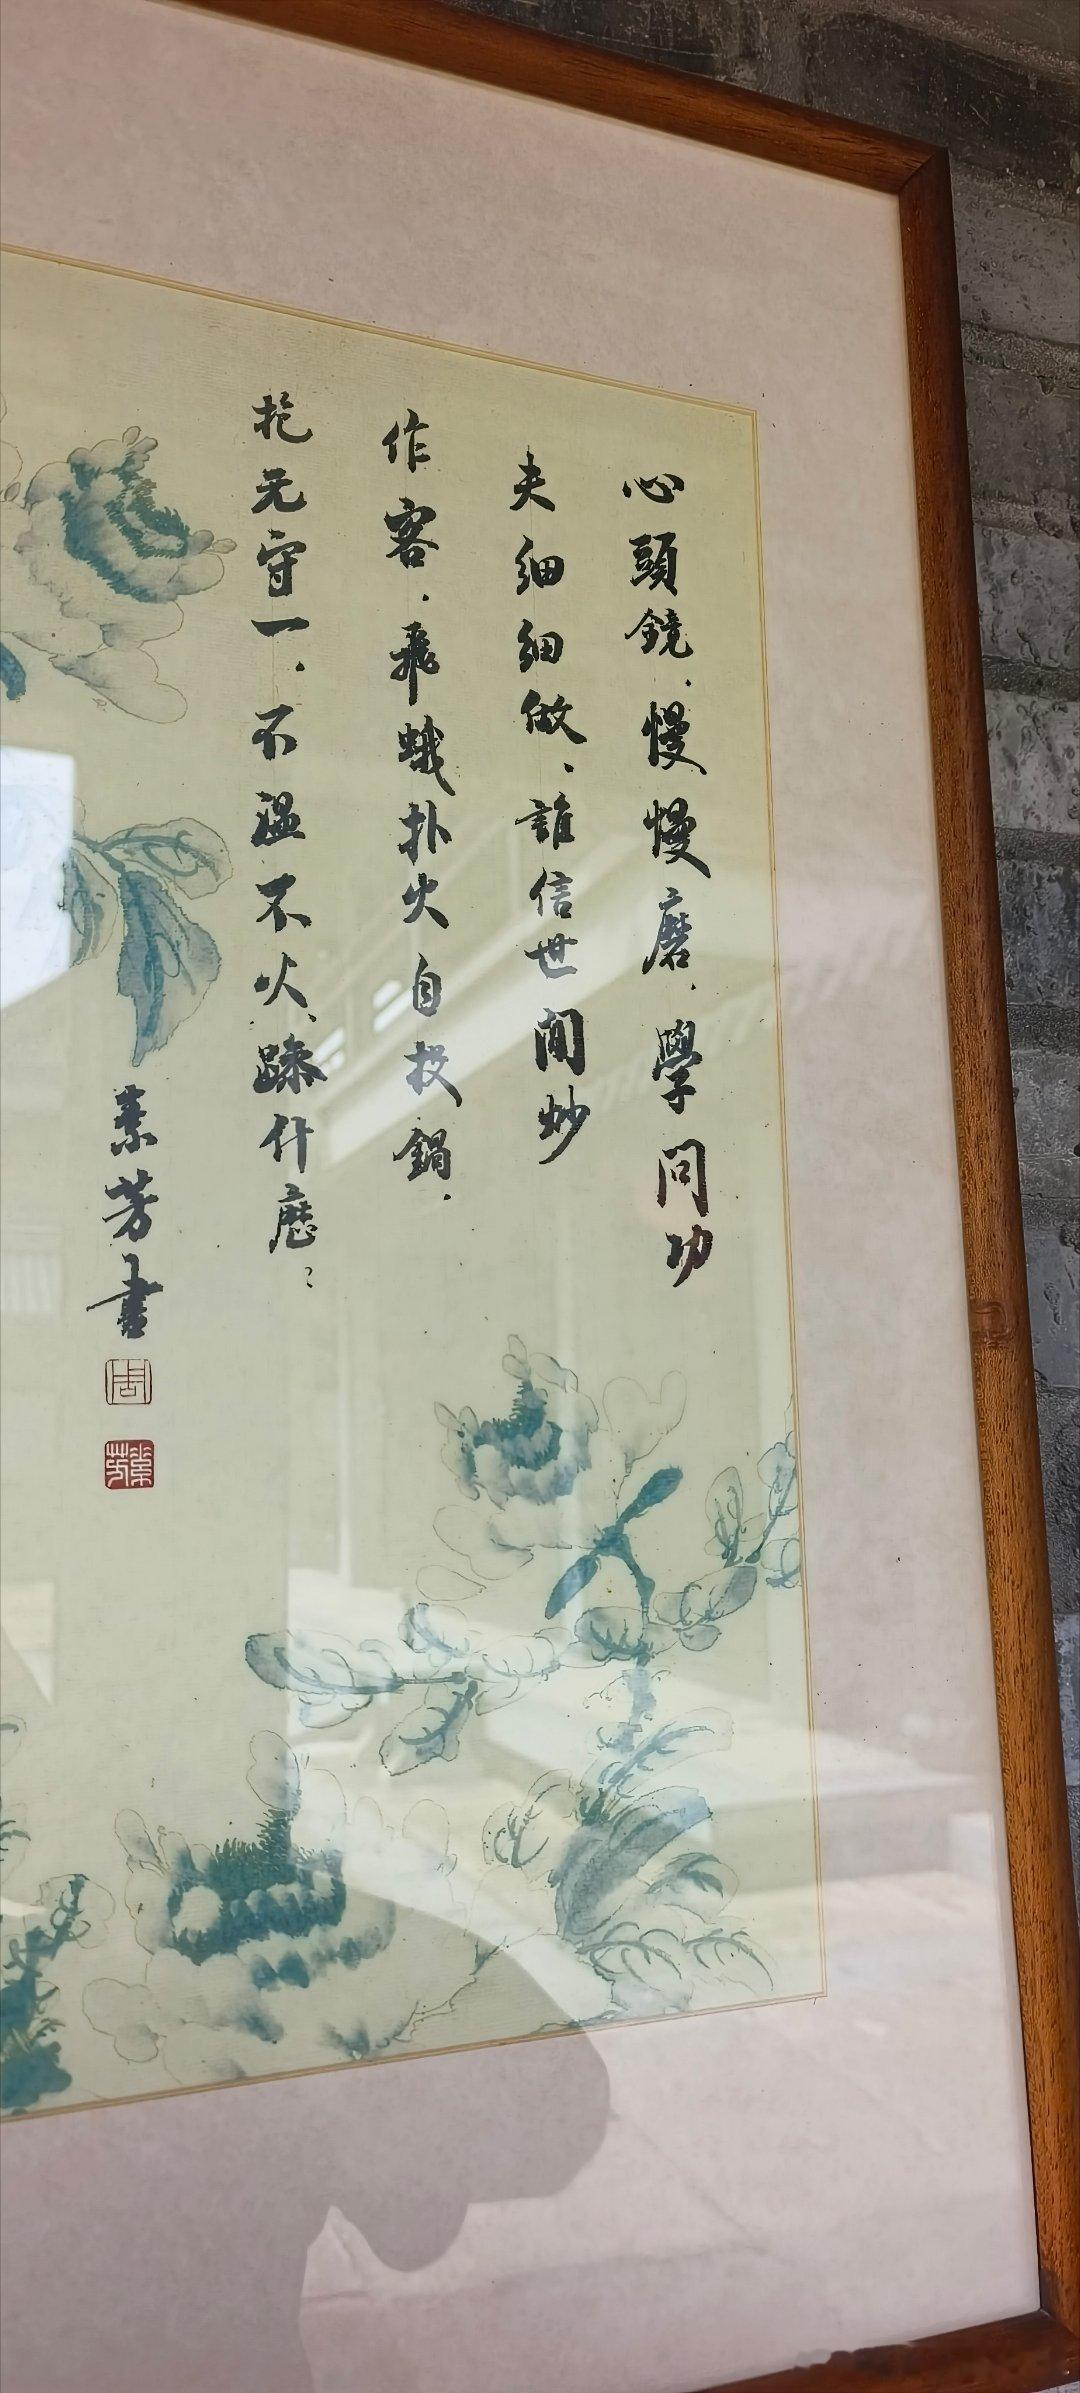 心頭鏡.慢慢磨.學問功
夫細細做.誰信世間炒
作客.飛蛾扑火自投鍋.
抱元守一.不溫不火、踩什麽?
素芳書
周
素芳